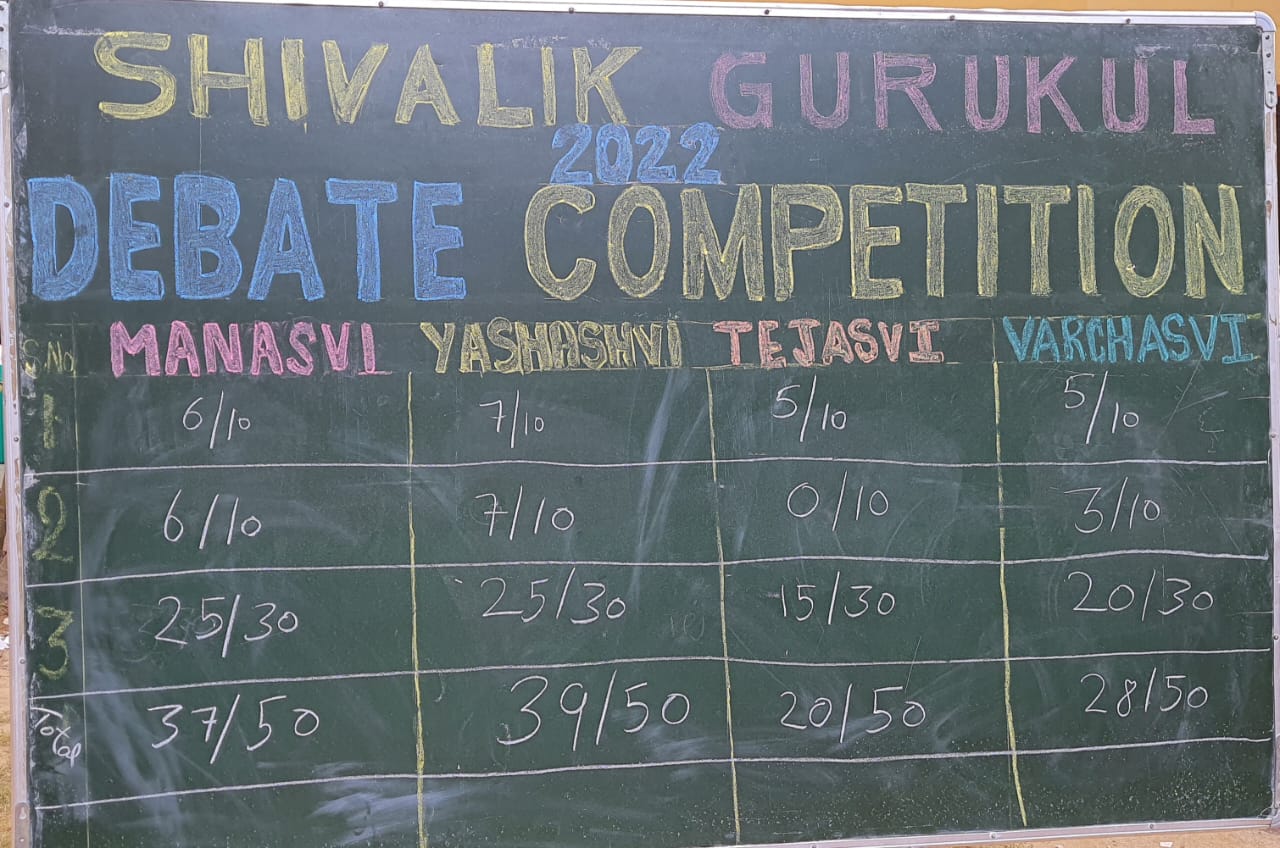 SHIVALIK GURUKUL
2022
DEBATE COMPETITION
S.No MANASVI YASHASHVI TEJASVI VARCHASVI
1 6/10 7/10 5/10 5/10
2 6/10 7/10 0/10 3/10
3 25/30 25/30 15/30 20/30
Total 37/50 39/50 20/50 28/50